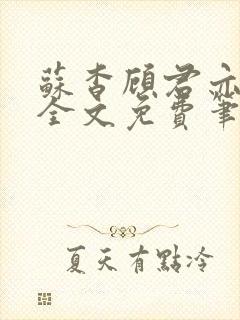 蘇杳顧君亦
全文免費筆
夏天有點冷